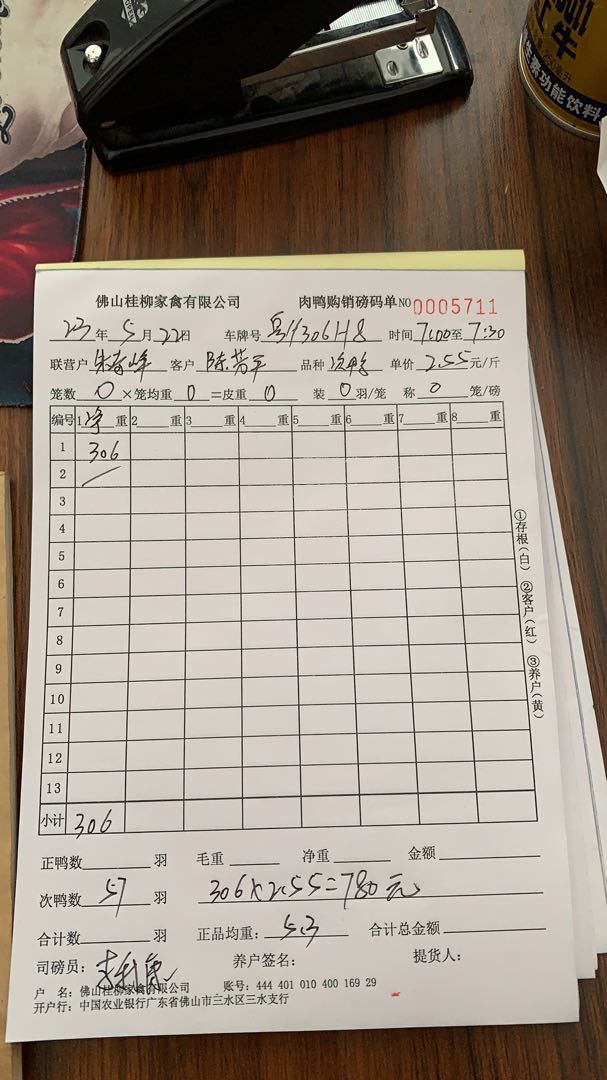 止牛
250毫升
生素功能饮料
佛山桂柳家禽有限公司 肉鸭购销磅码单 NO 0005711
23年5月22日 车牌号 粤H306H8 时间 7:00至7:30
联营户 客户 陈芳平 品种 次鸭 单价 2.55元/斤
笼数 0 ×笼均重 0 =皮重 0 装 0 羽/笼 称 0 笼/磅
编号 1 净 重 2 重 3 重 4 重 5 重 6 重 7 重 8 重
1 306
2
3
4
5
6
7
8
9
10
11
12
13
小计 306
①存根(白) ②客户(红) ③养户(黄)
正鸭数 羽 毛重 净重 金额
次鸭数 57 羽 306×2.55=780元
合计数 羽 正品均重: 5.3 合计总金额
司磅员: 养户签名: 提货人:
户 名: 佛山桂柳家禽有限公司 账号: 444 401 010 400 169 29
开户行: 中国农业银行广东省佛山市三水区三水支行